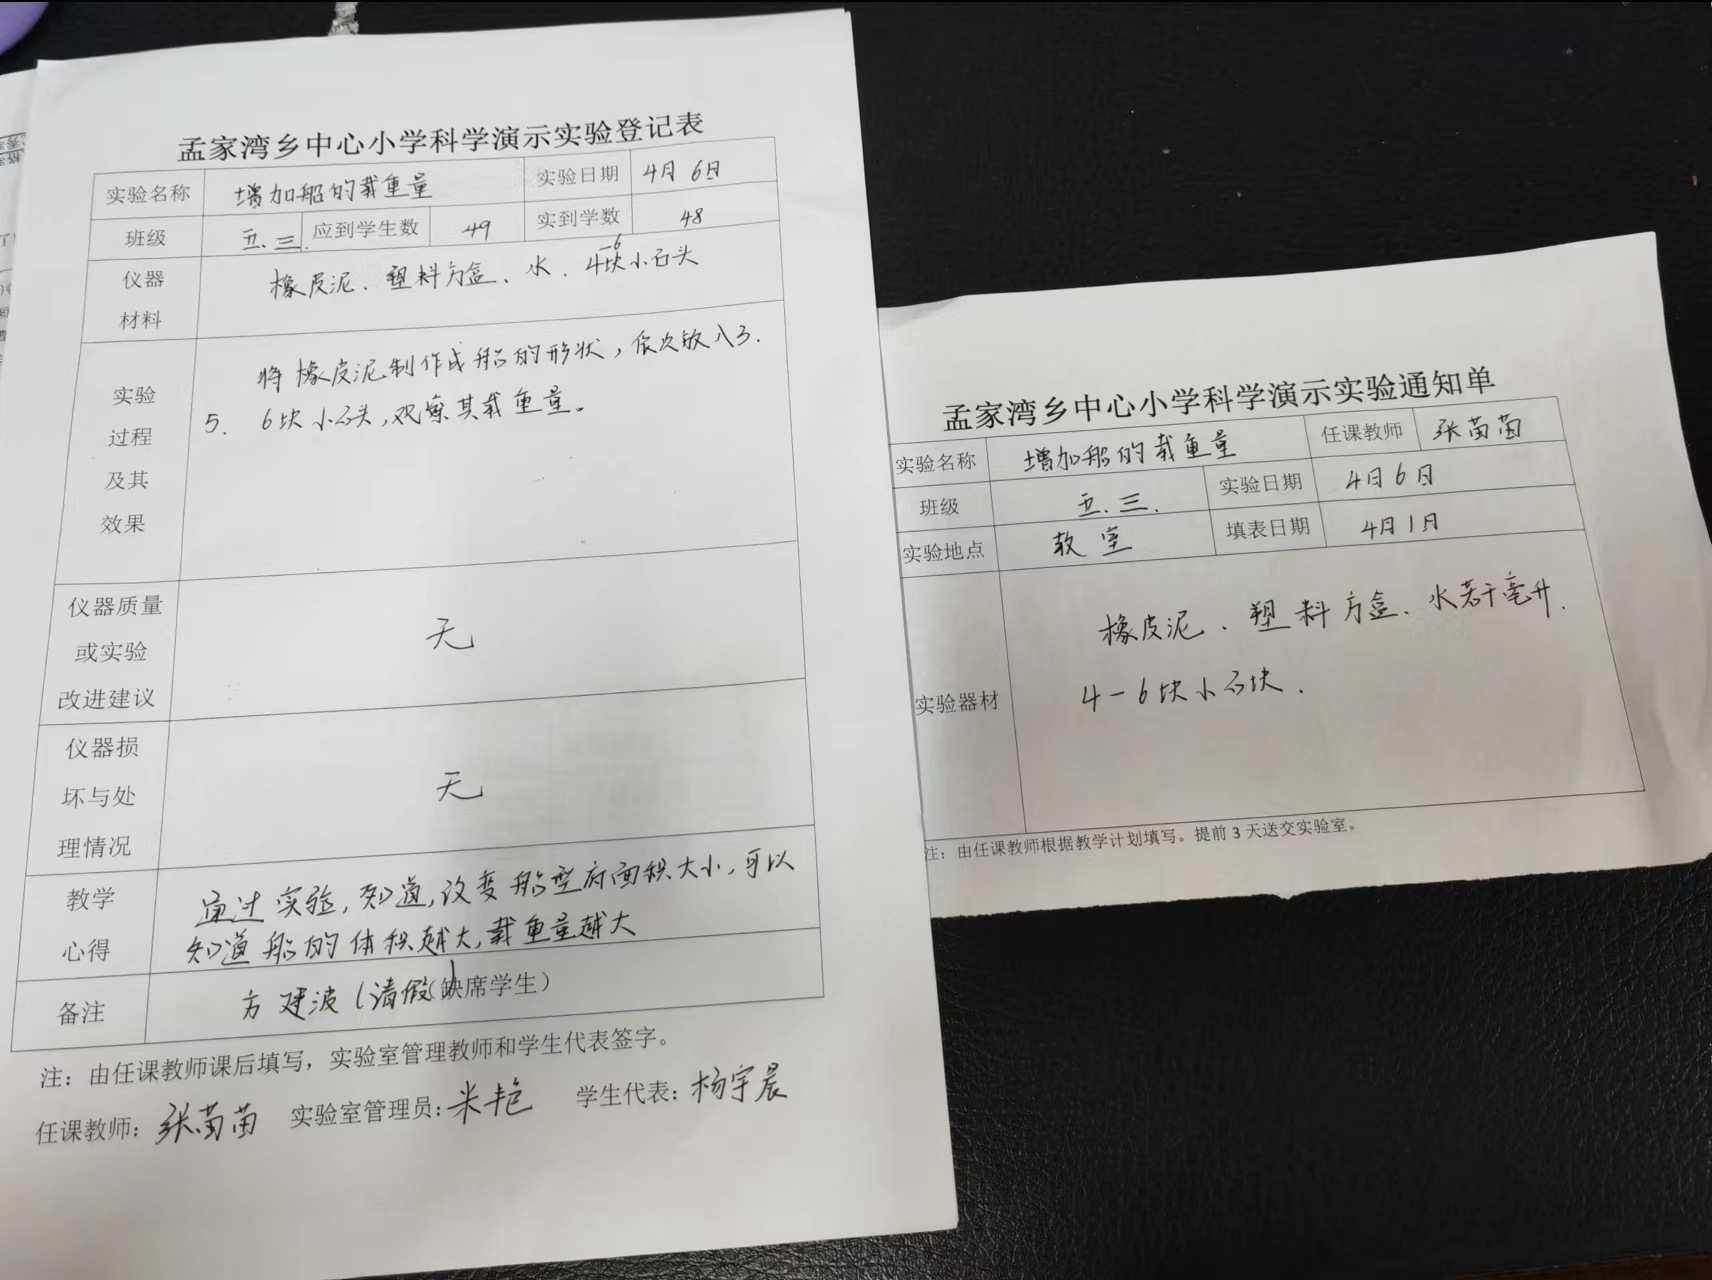 孟家湾乡中心小学科学演示实验登记表
实验名称 增加船的载重量 实验日期 4月6日
班级 五.三. 应到学生数 49 实到学数 48
仪器材料 橡皮泥、塑料方盒、水、4-6块小石头
实验过程及其效果 将橡皮泥制作成船的形状，依次放入3.
5. 6块小石头，观察其载重量。
仪器质量或实验改进建议 无
仪器损坏与处理情况 无
教学心得 通过实验，知道，改变船型底面积大小，可以
知道船的体积越大，载重量越大
备注 方建波（请假（缺席学生）
注：由任课教师课后填写，实验室管理教师和学生代表签字。
任课教师：张苗苗 实验室管理员：米艳 学生代表：杨宇晨
孟家湾乡中心小学科学演示实验通知单
实验名称 增加船的载重量 任课教师 张苗苗
班级 五.三. 实验日期 4月6日
实验地点 教室 填表日期 4月1日
实验器材 橡皮泥、塑料方盒、水若干毫升.
4-6块小石块.
注：由任课教师根据教学计划填写。提前3天送交实验室。